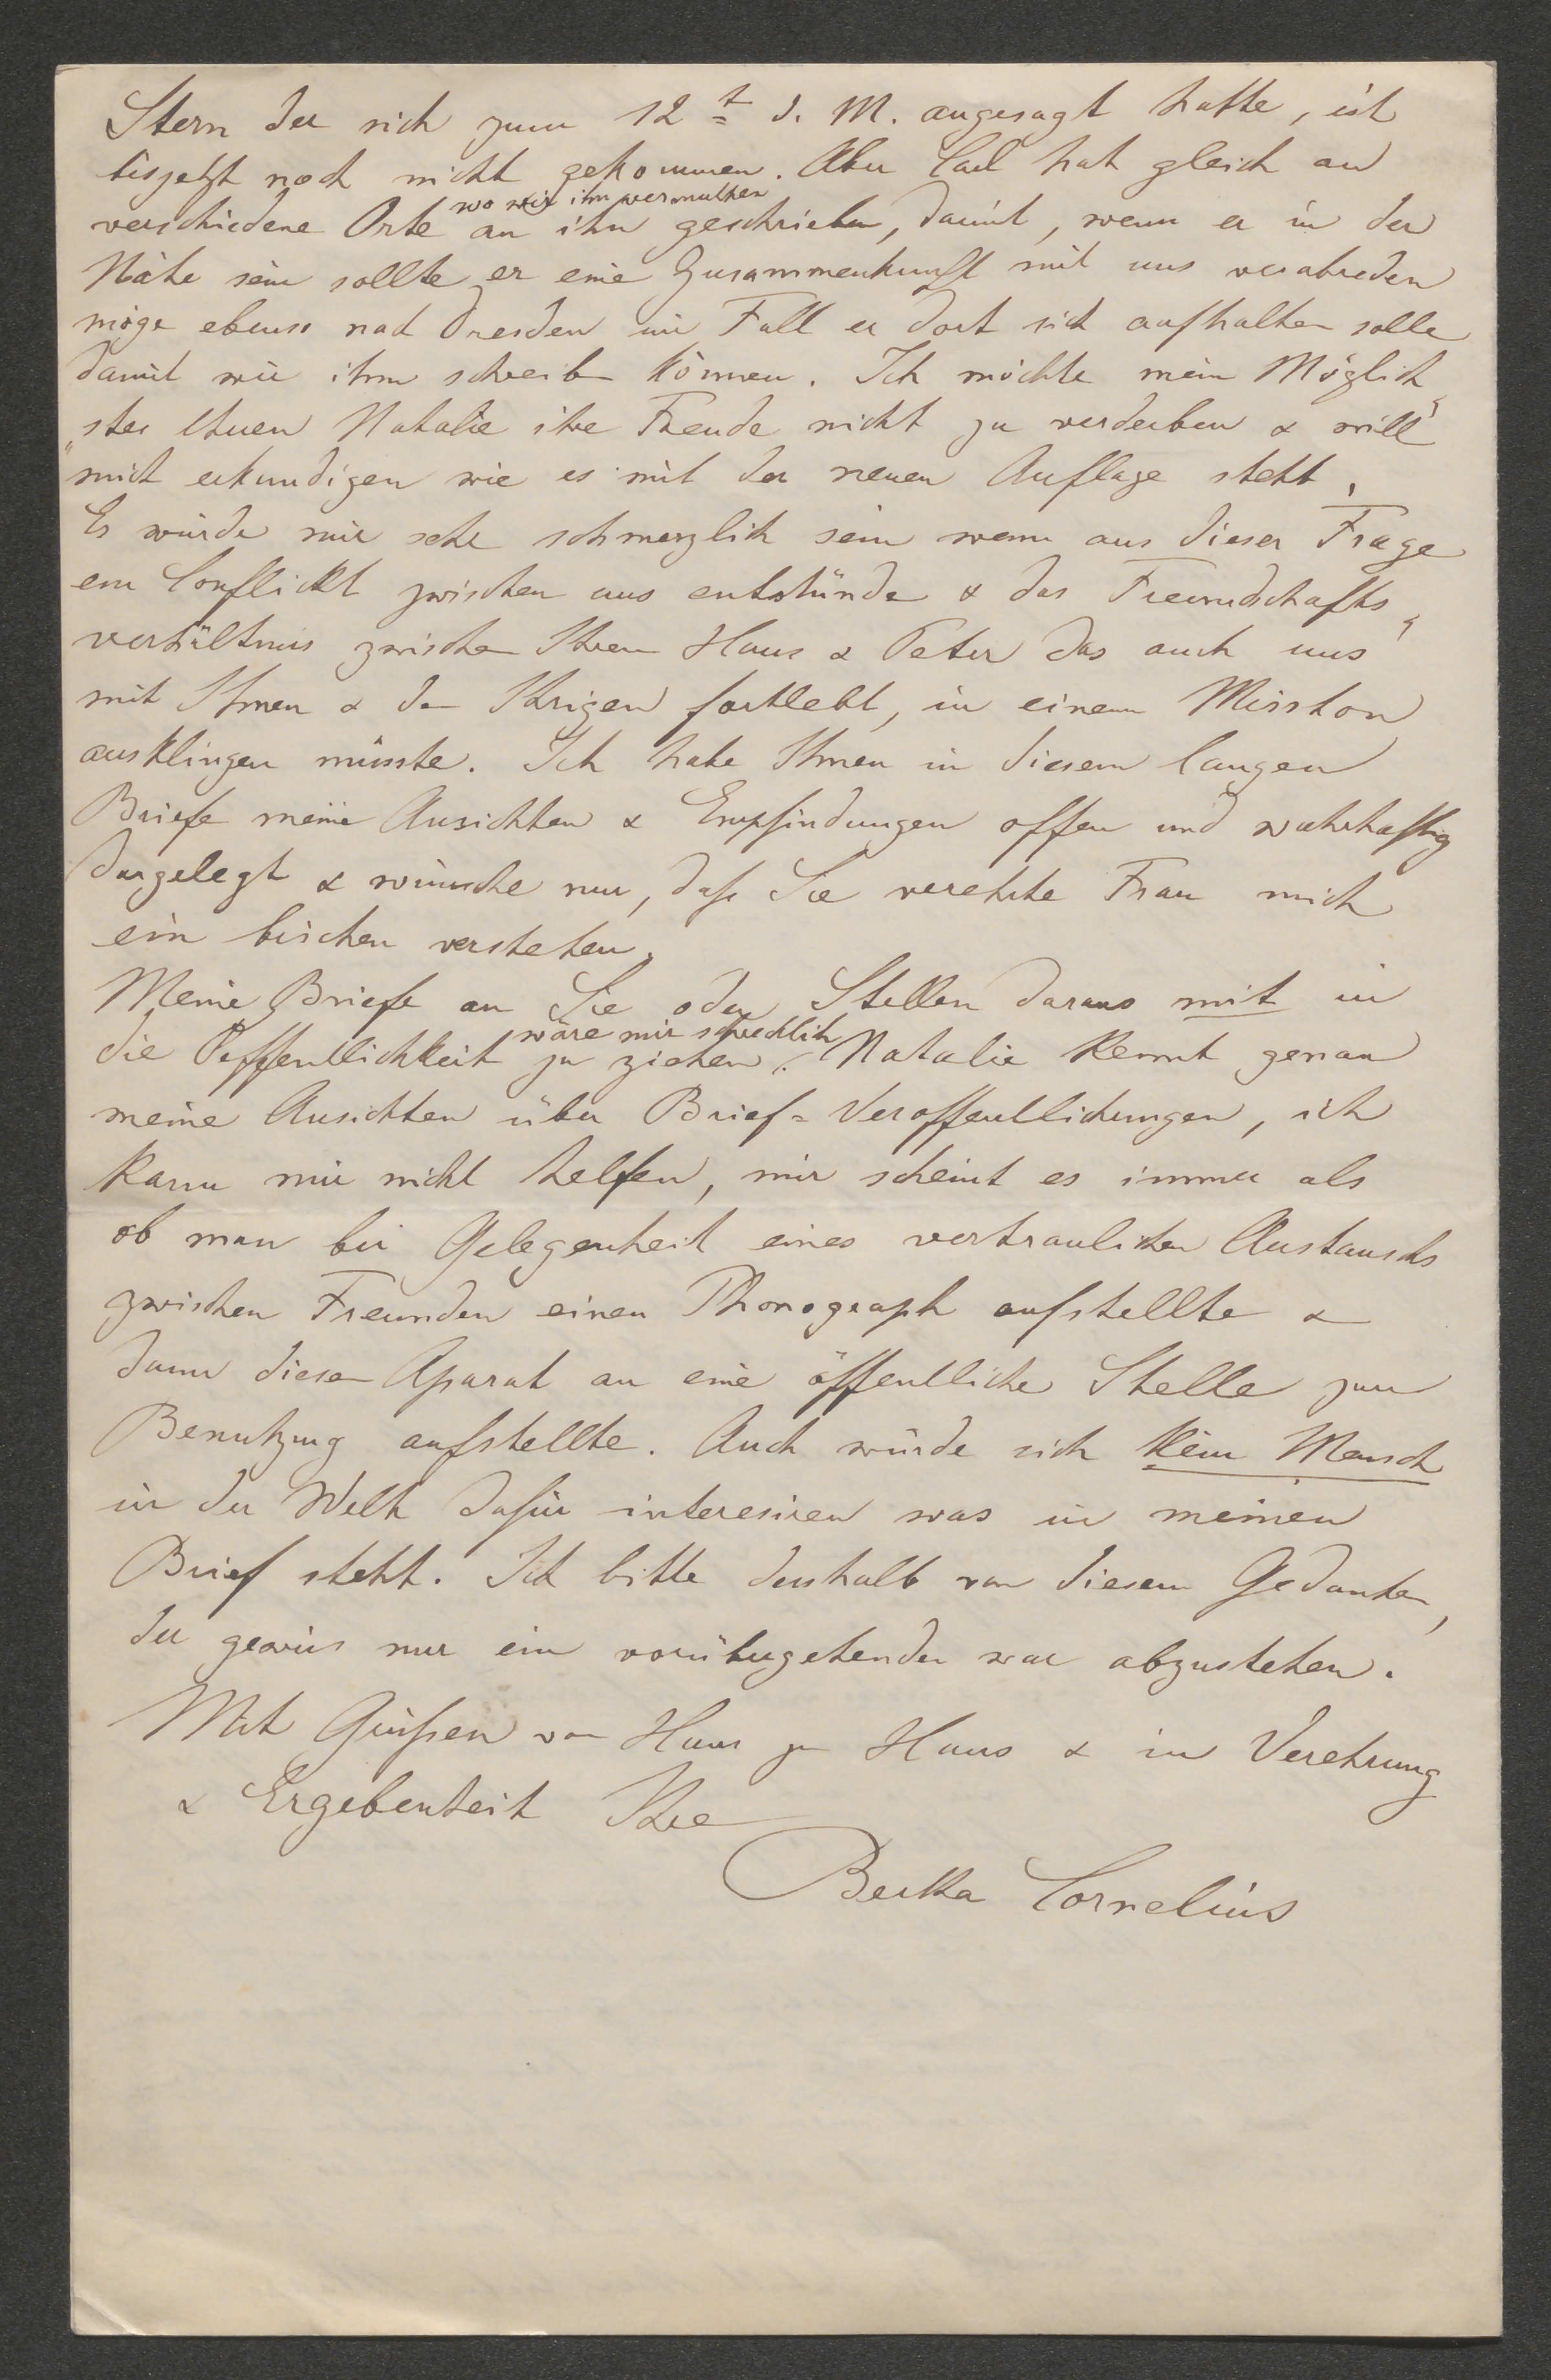 Stern der sich zum 12t d. M. angesagt hatte, ist
bisjetzt noch nicht gekommen. Aber Carl hat gleich an
wo wir ihn vermuthen
verschiedene Orte an ihn geschrieben, damit, wenn er in der
Nähe sein sollte er eine Zusammenkunft mit uns verabreden
möge ebenso nach Dresden im Fall er dort sich aufhalten solle
damit wir ihm schreiben können. Ich möchte mein Möglich„
„stes thuen Natalie ihre Freude nicht zu verderben & will
mich erkundigen wie es mit der neuen Auflage steht.
Es würde mir sehr schmerzlich sein wenn aus dieser Frage
ein Conflickt zwischen uns entstünde & das Freundschafts„
verhältniss zwischen Ihrem Haus & Peter das auch uns
mit Ihnen & den Ihrigen fortlebt, in einem Misston
ausklingen müsste. Ich habe Ihnen in diesem langen
Briefe meine Ansichten & Empfindungen offen und wahrhaftig
dargelegt & wünsche nur, daß Sie verehrte Frau mich
ein bischen verstehen.
Meine Briefe an Sie oder Stellen daraus mit in
wäre mir schrecklich
die Oeffentlichkeit zu ziehen. Natalie kennt genau
meine Ansichten über Brief=Veroffentlichungen, ich
kann mir nicht helfen, mir scheint es immer als
ob man bei Gelegenheit eines vertraulichen Austauschs
zwischen Freunden einen Phonograph aufstellte &
dann diesen Aparat an eine öffentliche Stelle zur
Benutzung aufstellte. Auch würde sich kein Mensch
in der Welt dafür interesiren was in meinen
Brief steht. Ich bitte deshalb von diesem Gedanken,
der gewiss nur ein vorübergehender war abzustehen.
Mit Grüßen von Haus zu Haus & in Verehrung
& Ergebenheit Ihre
Bertha Cornelius